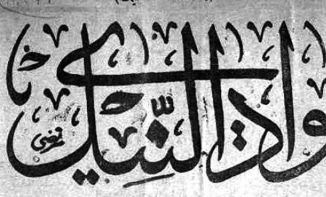 وادي النيل